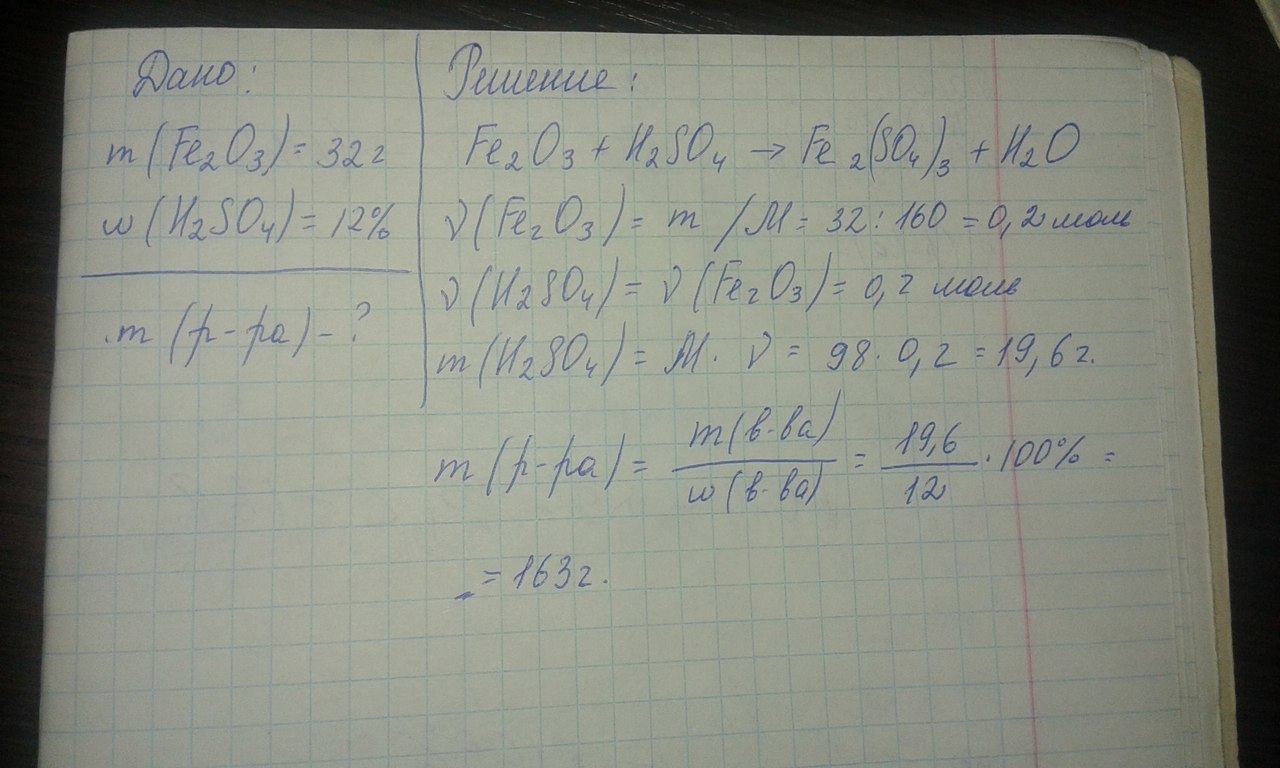 Дано:
m (Fe₂O₃) = 32 г
w (H₂SO₄) = 12%
m (р-ра) - ?
Решение:
Fe₂O₃ + H₂SO₄ → Fe₂(SO₄)₃ + H₂O
ν (Fe₂O₃) = m / M = 32 : 160 = 0,2 моль
ν (H₂SO₄) = ν (Fe₂O₃) = 0,2 моль
m (H₂SO₄) = M · ν = 98 · 0,2 = 19,6 г.
m (р-ра) = m (в-ва) / w (в-ва) = 19,6 / 12 · 100% =
= 163 г.